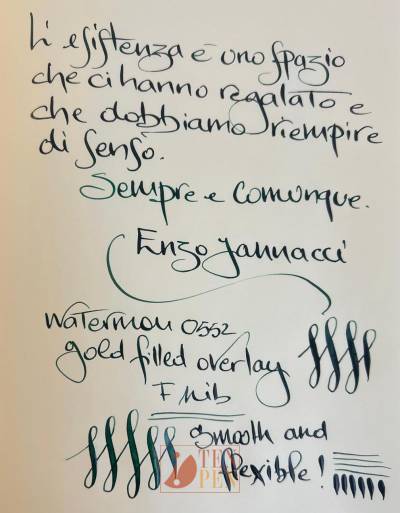 L'esistenza è uno spazio
che ci hanno regalato e
che dobbiamo riempire
di senso.
Sempre e comunque.
Enzo Jannacci
Waterman 0552
gold filled overlay
F nib
smooth and
flexible!
TEN
PEN